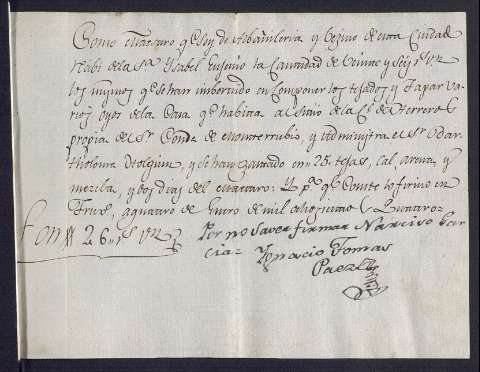 Como Maestro qe soy de Albañileria y Vezino de esta Ciudad
Rebi de la Sa Ysabel Eugenio la Cantidad de Veinte y Seys rs vn
los mismos qe se han imbertido en Componer los tejados y tapar va
rios oyos de la Casa que habita al sitio de la de Herreros
propia del Sr Conde de Monterrubio, y administra el Sr Dn Bar
tholome Holguin, y se han gastado en 25 tejas, cal arena, y
mezcla, y dos dias del Maestro: Y pa qe Conste lo firmo en
Trux, a quatro de Enero de mil ochocientos Quatro=
Son 26 rs vn Por no saver firmar Narciso Gar
cia= Ygnacio Tomas
Paez